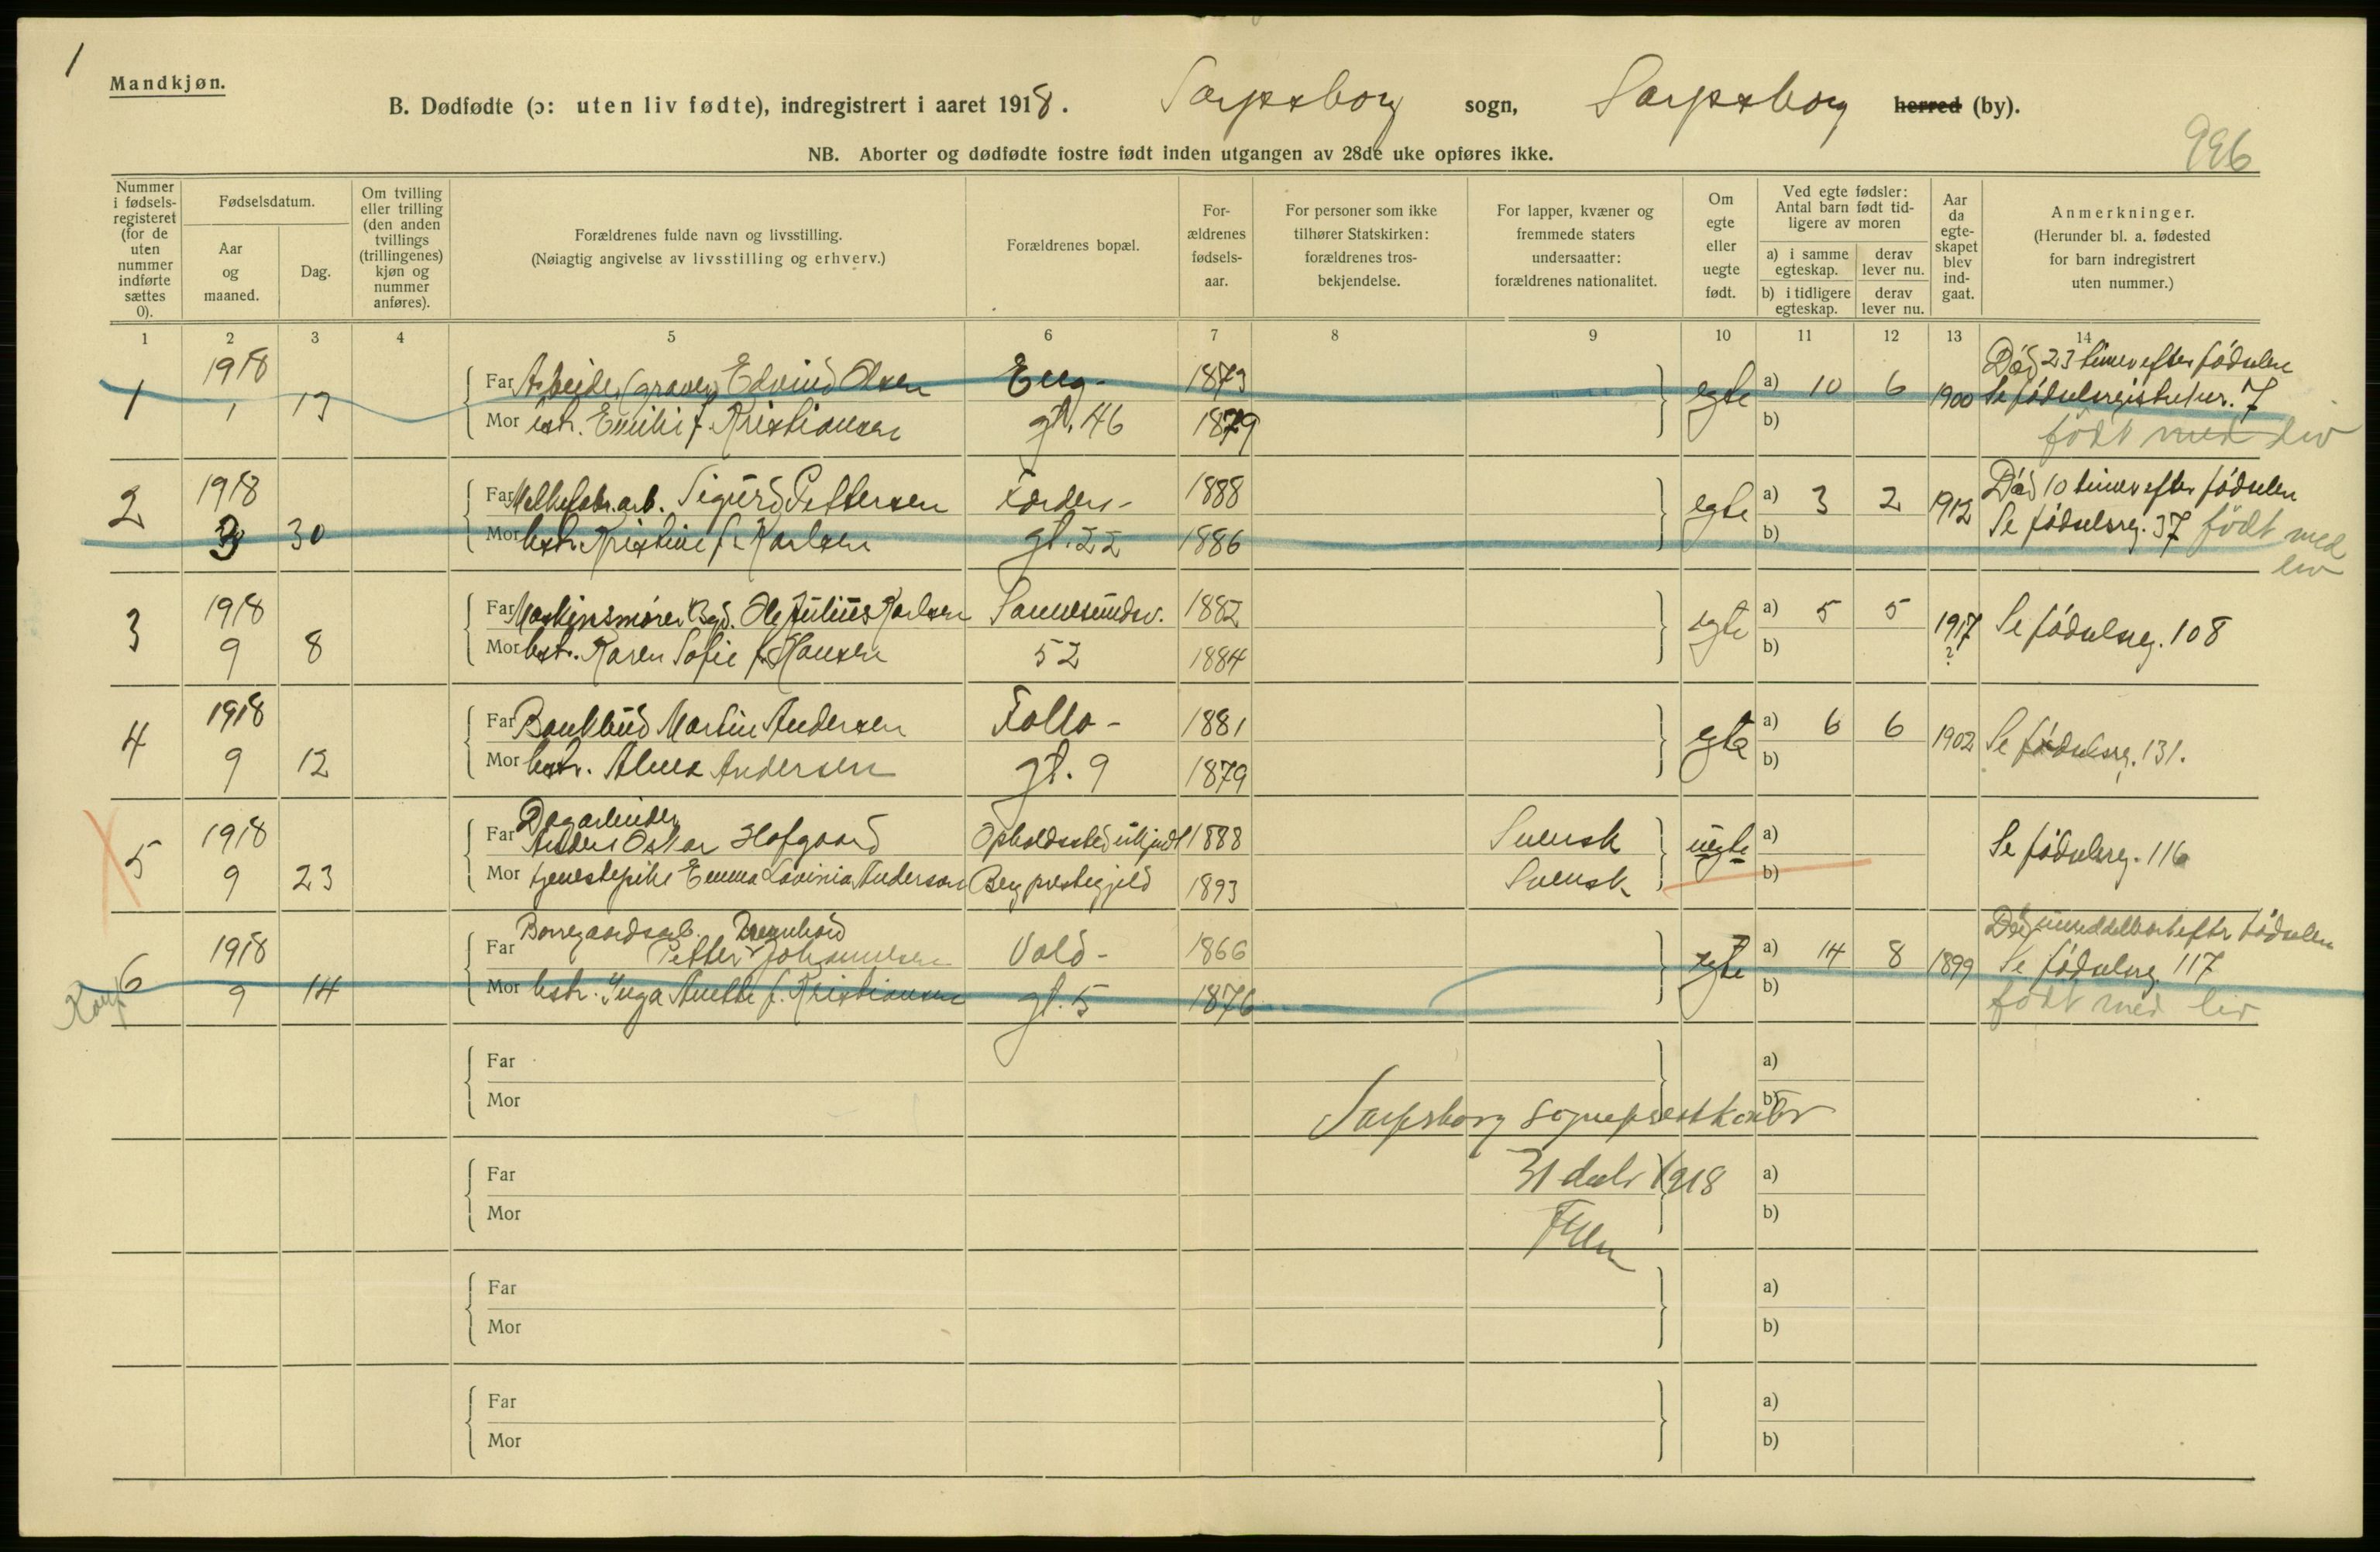 1
Mandkjøn.
B. Dødfødte (ɔ: uten liv fødte), indregistrert i aaret 1918. Sarpsborg sogn, Sarpsborg herred (by).
NB. Aborter og dødfødte fostre født inden utgangen av 28de uke opføres ikke.
996
Nummer i fødsels-registeret (for de uten nummer indførte sættes 0).
Fødselsdatum.
Aar og maaned.
Dag.
Om tvilling eller trilling (den anden tvillings (trillingenes) kjøn og nummer anføres).
Forældrenes fulde navn og livsstilling.
(Nøiagtig angivelse av livsstilling og erhverv.)
Forældrenes bopæl.
For-ældrenes fødsels-aar.
For personer som ikke tilhører Statskirken: forældrenes tros-bekjendelse.
For lapper, kvæner og fremmede staters undersaatter: forældrenes nationalitet.
Om egte eller uegte født.
Ved egte fødsler: Antal barn født tid-ligere av moren
a) i samme egteskap.
derav lever nu.
b) i tidligere egteskap.
derav lever nu.
Aar da egte-skapet blev ind-gaat.
Anmerkninger.
(Herunder bl. a. fødested for barn indregistrert uten nummer.)
1 2 3 4 5 6 7 8 9 10 11 12 13 14
1 1918 1 13
Far Arbeider (graver) Edvind Olsen Eng- 1873
Mor hstr. Emilie f. Kristiansen gt. 46 1879
egte a) 10 6 1900
b)
Død 23 timer efter fødselen
Se fødselsregister nr. 7
født med liv
2 1918 3 30
Far Sigurd Pettersen 1888
Mor hstr. Kristine f. Karlsen gt. 22 1886
egte a) 3 2 1912
b)
Død 10 timer efter fødselen
Se fødselsreg. 37 født med
liv
3 1918 9 8
Far Maskinsmører Bgd. Ole Julius Karlsen Sannesundsv. 1882
Mor hstr. Karen Sofie f. Hansen 52 1884
egte a) 5 5 1917
?
b)
Se fødselsreg. 108
4 1918 9 12
Far Bankbud Martin Andersen Follo- 1881
Mor hstr. Alma Andersen gt. 9 1879
egte a) 6 6 1902
b)
Se fødselsreg. 131.
5 1918 9 23
Dagarbeider
Far Anders Oskar Hofgaard Opholdssted ukjendt 1888 Svensk
Mor tjenestepike Emma Lovinia Anderson Berg prestegjeld 1893 Svensk
uegte a)
b)
Se fødselsreg. 116
6 1918 9 14
Borregaardsarb.
Far Petter Johannesen Vold- 1866
Mor hstr. Inga Anette f. Kristiansen gt. 5 1876
egte a) 14 8 1899
b)
Død umiddelbart efter fødselen
Se fødselsreg. 117
født med liv
Far
Mor
a)
b)
Sarpsborg sogneprestkontor
Far
Mor
a)
b)
31 decbr 1918
Far
Mor
a)
b)
Far
Mor
a)
b)